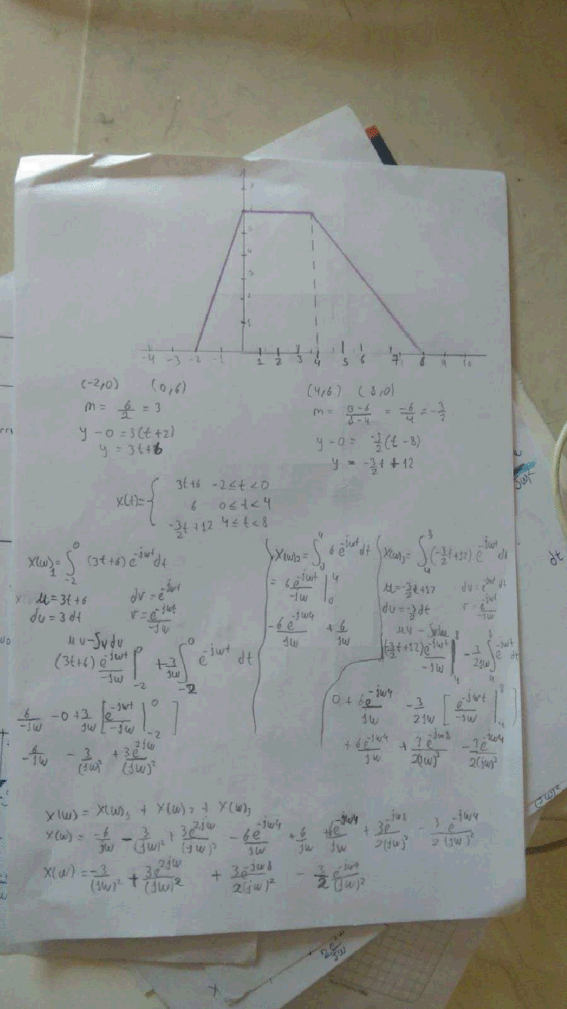 -4 -3 -2 -1 1 2 3 4 5 6 7 8 9 10
(-2,0) (0,6)
m = 6/2 = 3
y - 0 = 3(t+2)
y = 3t+6
(4,6) (8,0)
m = (0-6)/(8-4) = -6/4 = -3/2
y - 0 = -3/2(t-8)
y = -3/2 t + 12
x(t) = {
3t+6 -2≤t<0
6 0≤t<4
-3/2 t+12 4≤t<8
X(w)1 = ∫_{-2}^{0} (3t+6) e^{-jwt} dt
u = 3t+6 dv = e^{-jwt}
du = 3 dt v = e^{-jwt}/-jw
uv - ∫v du
(3t+6) e^{-jwt}/-jw |_{-2}^{0} + 3/jw ∫_{-2}^{0} e^{-jwt} dt
6/-jw - 0 + 3/jw [e^{-jwt}/-jw |_{-2}^{0}]
-6/jw - 3/(jw)² + 3e^{2jw}/(jw)²
X(w)2 = ∫_{0}^{4} 6e^{-jwt} dt
= 6e^{-jwt}/-jw |_{0}^{4}
-6e^{-jw4}/jw + 6/jw
X(w)3 = ∫_{4}^{8} (-3/2 t+12) e^{-jwt} dt
u = -3/2 t+12
du = -3/2 dt v = e^{-jwt}/-jw
uv - ∫v du
(-3/2 t+12) e^{-jwt}/-jw |_{4}^{8} - 3/2jw ∫_{4}^{8} e^{-jwt} dt
0 + 6e^{-jw4}/jw - 3/2jw [e^{-jwt}/-jw |_{4}^{8}]
+ 6e^{-jw4}/jw + 3e^{-jw8}/2(jw)² - 3e^{-jw4}/2(jw)²
X(w) = X(w)1 + X(w)2 + X(w)3
X(w) = -6/jw - 3/(jw)² + 3e^{2jw}/(jw)² - 6e^{-jw4}/jw + 6/jw + 6e^{-jw4}/jw + 3e^{-jw8}/2(jw)² - 3/2 e^{-jw4}/(jw)²
X(w) = -3/(jw)² + 3e^{2jw}/(jw)² + 3e^{-jw8}/2(jw)² - 3/2 e^{-jw4}/(jw)²
dt